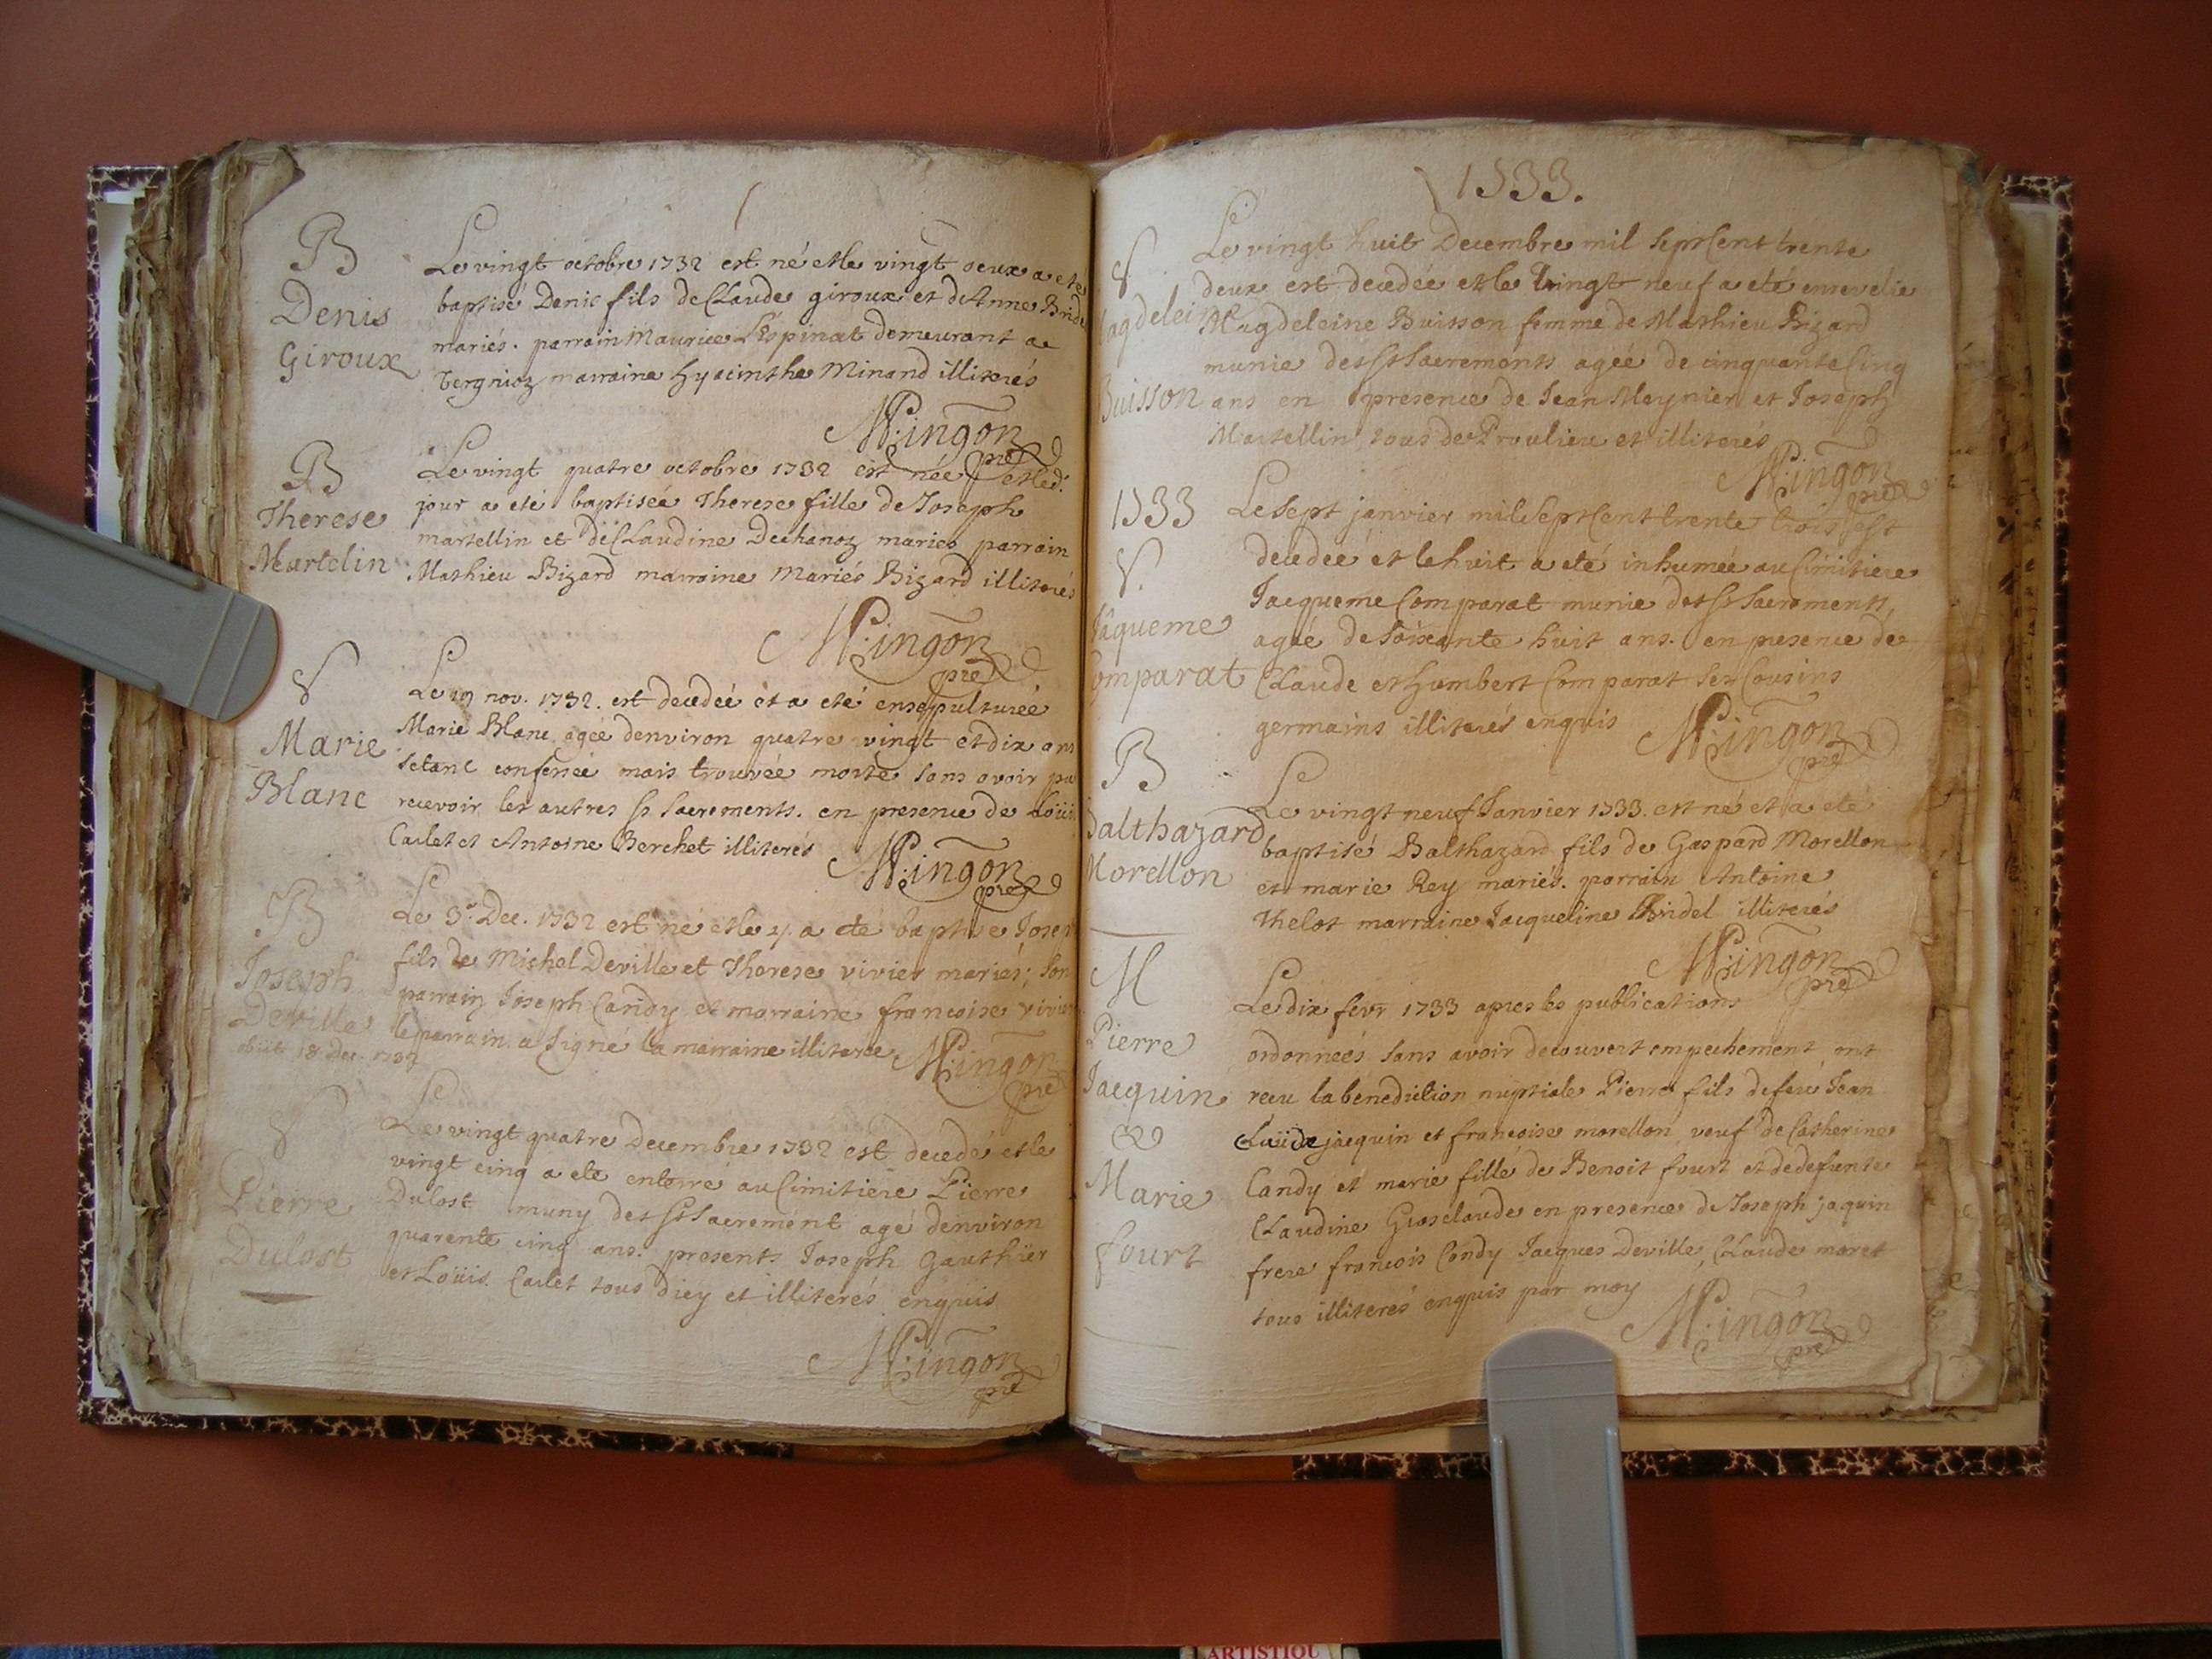 B
Denis
Giroux
Le vingt octobre 1732 est né et le vingt deux a eté
baptisé Denis fils de Claude giroux et d'Anne Bride
mariés. parrain Maurice L'Espinat demeurant a
Vergnioz marraine hyacinthe Minand illiterés
Mingon
pre
B
Therese
Martelin
Le vingt quatre octobre 1732 est née et led.
jour a eté baptisée Therese fille de Joseph
martellin et de Claudine Dechanoz mariés parrain
Mathieu Bizard marraine Mariés Bizard illiterés
Mingon
pre
S
Marie
Blanc
Le 19 nov. 1732. est decedeé et a eté ensepulturéé
Marie Blanc ageé denviron quatre vingt et dix ans
setant confesseé mais trouvée morte sans avoir pu
recevoir les autres ss sacrements. en presence de Loüis
Carlet et Antoine Berchet illiterés
Mingon
pre
B
Joseph
Deville
obiit 18 Dec. 1732
Le 3e. Dec. 1732 est né et le 4. a eté baptise Joseph
fils de Michel Deville et Therese vivier mariés; son
parrain Joseph Candy et marraine francoise vivier
le parrain a signé la marraine illiteree
Mingon
pre
S
Pierre
Dulost
Le vingt quatre Decembre 1732 est decedé et le
vingt cinq a ete enterré au Cimitiere Pierre
Dulost muny des Sts Sacrement agé denviron
quarente cinq ans. presents Joseph Gauthier
et Loüis Carlet tous diey et illiterés enquis
Mingon
pre
1733.
S.
Magdeleine
Buisson
Le vingt huit Decembre mil sept Cent trente
deux est decedée et le vingt neuf a eté ensevelie
Magdeleine Buisson femme de Mathieu Bizard
munie des Sts Sacrements ageé de cinquante Cinq
ans en presence de Jean Meynier et Joseph
Martellin tous de Proulieu et illiterés
Mingon
pre
1733
S.
Jâqueme
Comparat
Le Sept janvier mil Sept Cent trente trois est
decedeé et le huit a eté inhumée au Cimitiere
Jacqueme Comparat munie des Sts Sacrements,
ageé de soixante huit ans. en presence de
Claude et humbert Comparat ses Cousins
germains illiterés enquis
Mingon
pre
B
Balthazard
Morellon
Le vingt neuf Janvier 1733. est né et a eté
baptisé Balthazard fils de Gaspard Morellon
et marie Rey mariés. parrain Antoine
Thelot marraine Jacqueline Bridel illiterés
Mingon
pre
M
Pierre
Jacquin
&
Marie
fourt
Le dix fevr 1733 apres les publications
ordonneés sans avoir decouvert empechement ont
recu la benediction nuptiale Pierre fils de feu Jean
Claude jacquin et francoise morellon veuf de Catherine
Candy et marie fille de Benoit fourt et de defunte
Claudine Grosclaude en presence de Joseph jaquin
frere francois Condy Jacques Deville, Claude moret
tous illiterés enquis par moy
Mingon
pre
ARTISTIQU